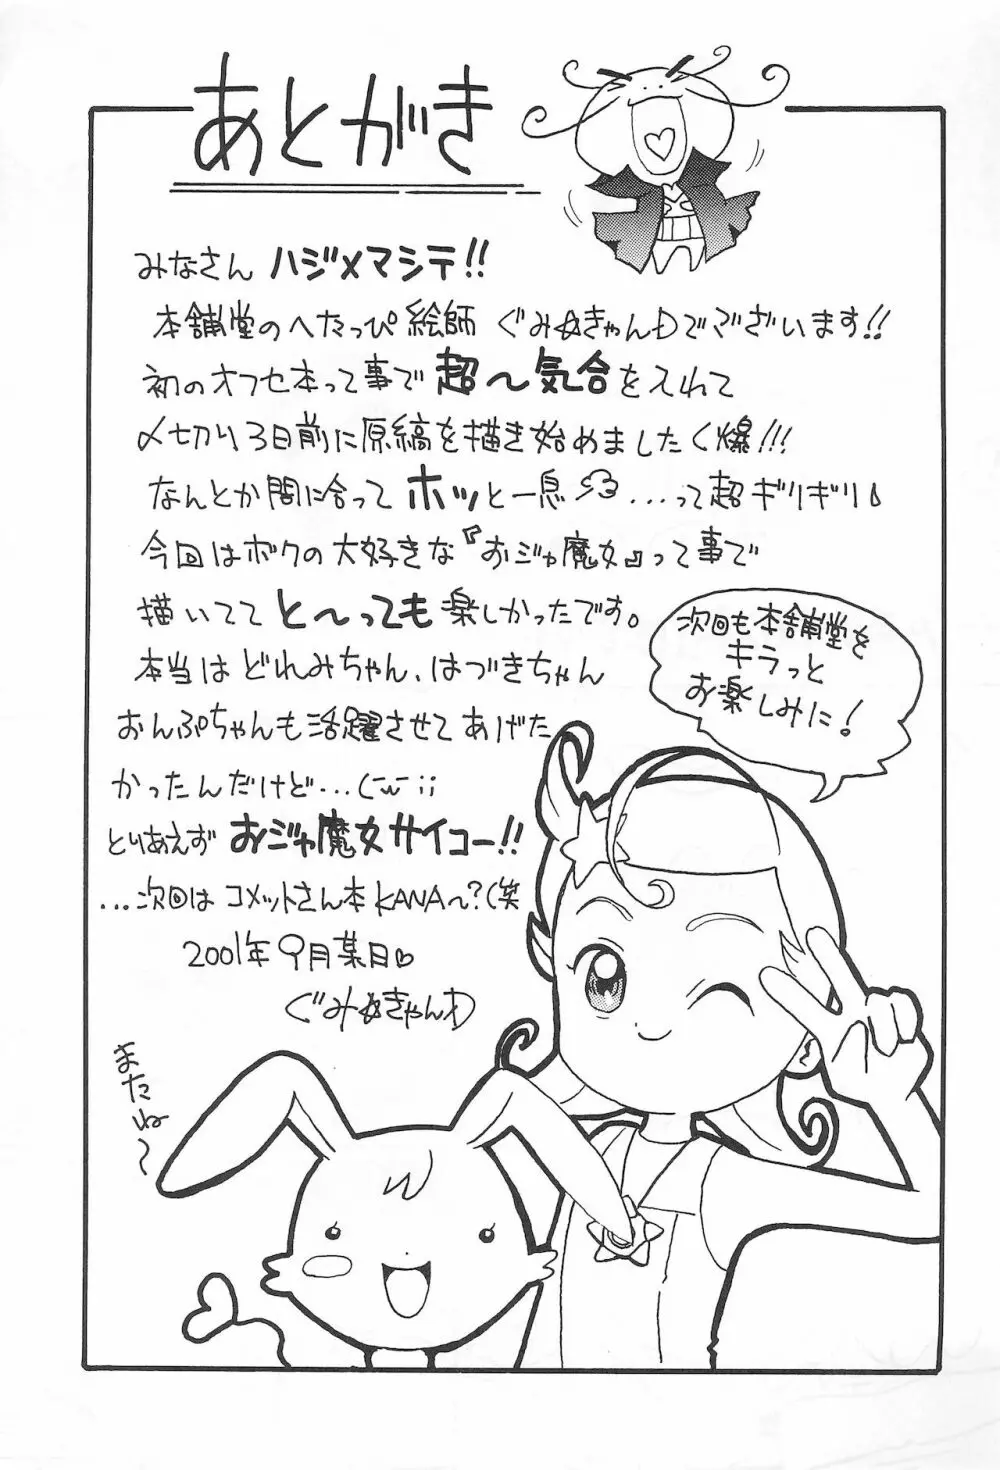 あとがき
みなさん ハジメマシテ!!
本舗堂のへたっぴ絵師 ぐみ☆きゃんDでございます!!
初のオフセ本って事で 超〜気合を入れて
〆切り3日前に原稿を描き始めました(爆!!!
なんとか間に合って ホッと一息 ...って超ギリギリ
今回はボクの大好きな『おジャ魔女』って事で
描いてて と〜っても 楽しかったです。
本当は どれみちゃん、はづきちゃん
おんぷちゃんも活躍させて あげた
かったんだけど...(-w-;;
とりあえず おジャ魔女サイコー!!
...次回は コメットさん本 KANA〜?(笑
2001年 9月某日♡
ぐみ☆きゃんD
次回も本舗堂を
キラっと
お楽しみに!
またね〜